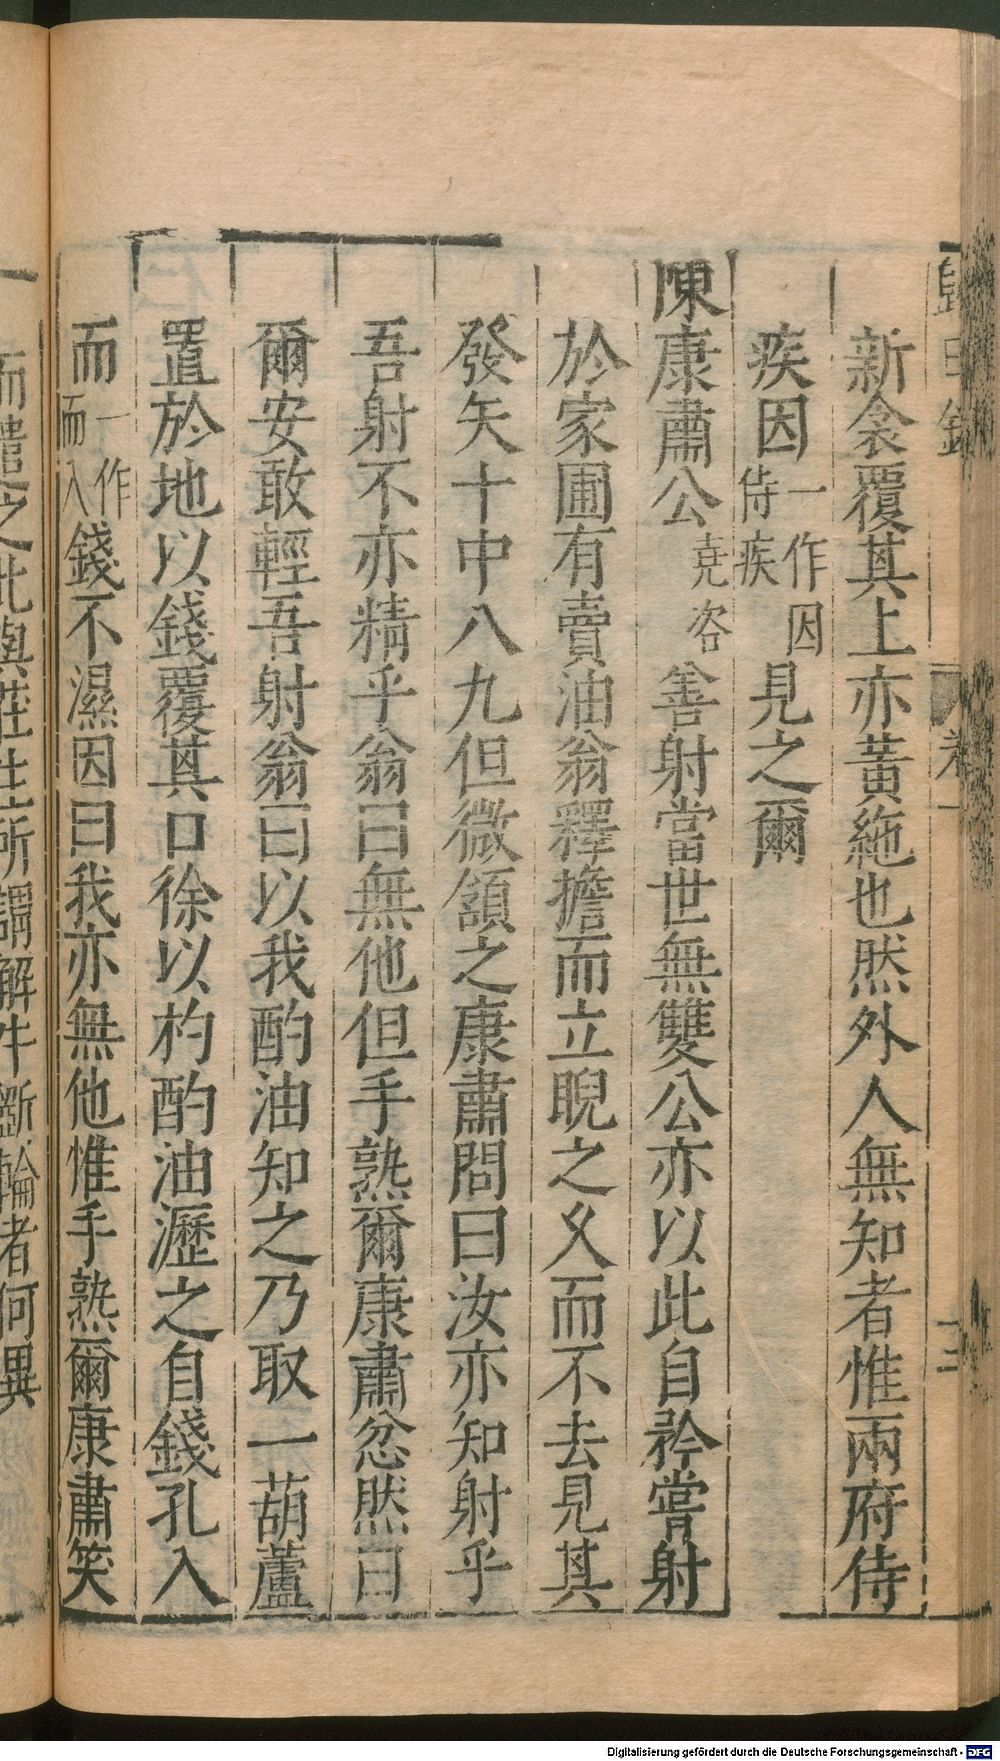 新衾覆其上亦黃絁也然外人無知者惟兩府侍
疾因一作因侍疾見之爾
陳康肅公堯咨善射當世無雙公亦以此自矜嘗射
於家圃有賣油翁釋擔而立睨之乆而不去見其
發矢十中八九但微頷之康肅問曰汝亦知射乎
吾射不亦精乎翁曰無他但手熟爾康肅忿然曰
爾安敢輕吾射翁曰以我酌油知之乃取一葫蘆
置於地以錢覆其口徐以杓酌油瀝之自錢孔入
而一作而入錢不濕因曰我亦無他惟手熟爾康肅笑
而遣之此與莊生所謂解牛斵輪者何異
歸田錄 卷一 十三
Digitalisierung gefördert durch die Deutsche Forschungsgemeinschaft - DFG